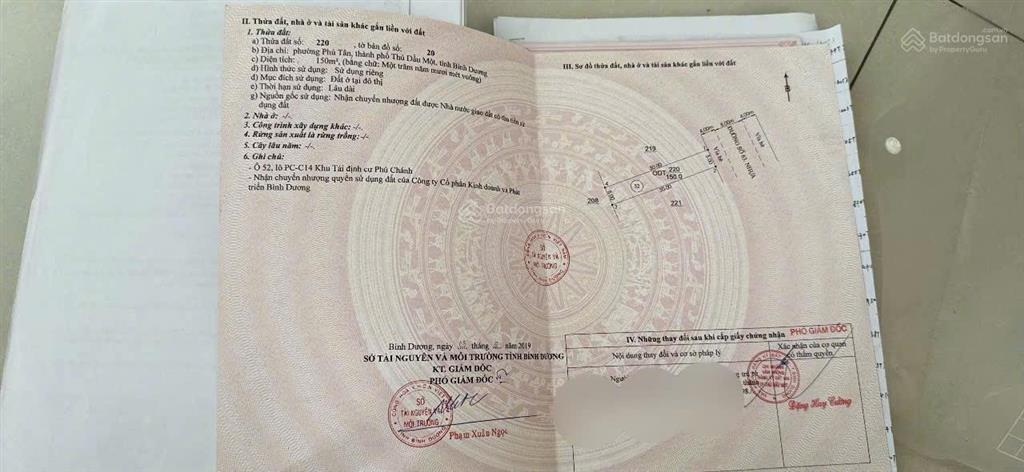 II. Thửa đất, nhà ở và tài sản khác gắn liền với đất
1. Thửa đất:
a) Thửa đất số: 220 , tờ bản đồ số: 20
b) Địa chỉ: phường Phú Tân, thành phố Thủ Dầu Một, tỉnh Bình Dương
c) Diện tích: 150m², (bằng chữ: Một trăm năm mươi mét vuông)
d) Hình thức sử dụng: Sử dụng riêng
đ) Mục đích sử dụng: Đất ở tại đô thị
e) Thời hạn sử dụng: Lâu dài
g) Nguồn gốc sử dụng: Nhận chuyển nhượng đất được Nhà nước giao đất có thu tiền sử
dụng đất
2. Nhà ở: -/-
3. Công trình xây dựng khác: -/-
4. Rừng sản xuất là rừng trồng: -/-
5. Cây lâu năm: -/-
6. Ghi chú:
- Ô 52, lô PC-C14 Khu Tái định cư Phú Chánh
- Nhận chuyển nhượng quyền sử dụng đất của Công ty Cổ phần Kinh doanh và Phát
triển Bình Dương
Bình Dương, ngày 2019
SỞ TÀI NGUYÊN VÀ MÔI TRƯỜNG TỈNH BÌNH DƯƠNG
KT. GIÁM ĐỐC
PHÓ GIÁM ĐỐC
SỞ
TÀI NGUYÊN VÀ
MÔI TRƯỜNG
TỈNH BÌNH DƯƠNG
Phạm Xuân Ngọc
SỞ
TÀI NGUYÊN VÀ
MÔI TRƯỜNG
III. Sơ đồ thửa đất, nhà ở và tài sản khác gắn liền với đất
B
4.00m
6.00m
4.00m
Vỉa hè
ĐƯỜNG SỐ 61, NHỰA
Vỉa hè
219
30.00
5.00
ODT 220
150.0
52
5.00
30.00
208
221
IV. Những thay đổi sau khi cấp giấy chứng nhận
Nội dung thay đổi và cơ sở pháp lý
Xác nhận của cơ quan
có thẩm quyền
PHÓ GIÁM ĐỐC
Đặng Huy Cường
Batdongsan
by PropertyGuru
Batdongsan
by PropertyGuru
Batdongsan
by PropertyGuru